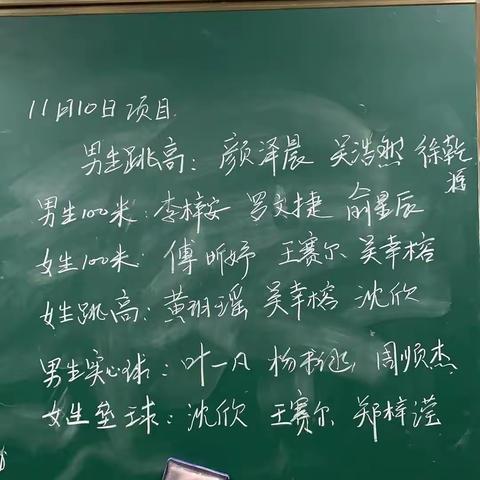 11月10日项目
男生跳高：颜泽晨 吴浩然 徐乾
男生100米：李梓安 罗文捷 俞星辰
女生100米：傅昕妤 王赛尔 吴幸榕
女生跳高：黄玥瑶 吴幸榕 沈欣
男生实心球：叶一凡 杨 周顺杰
女生垫球：沈欣 王赛尔 郑梓滢